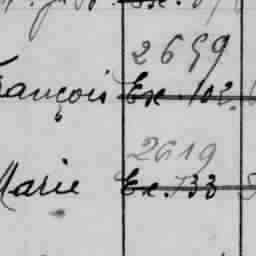 2659
François Ex. 102.
2619
Marie Ex. 733